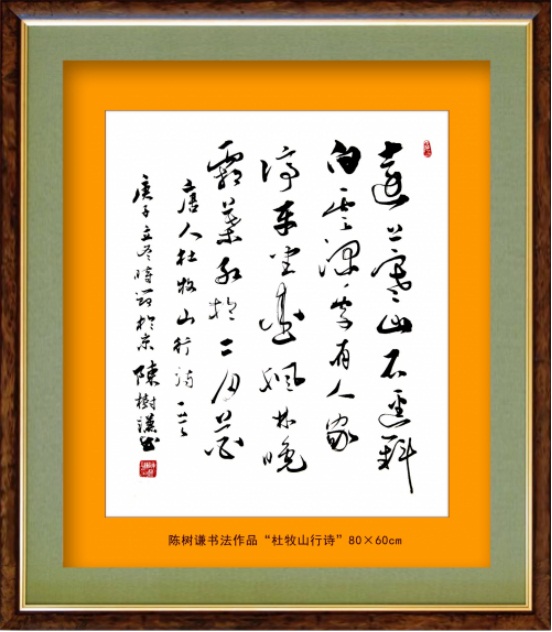 遠上寒山石逕斜
白雲深處有人家
停車坐愛楓林晚
霜葉紅於二月花
唐人杜牧山行詩一首
庚子立冬時節於京陳樹謙书
陈树谦书法作品“杜牧山行诗”80×60cm